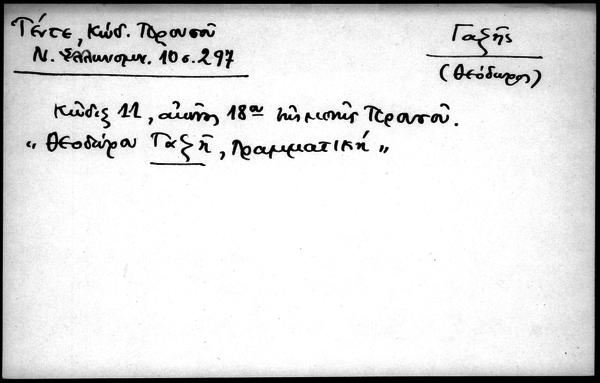 Γέντε, Κώδ. Προυσοῦ
Ν. Ἑλληνομν. 10 σ. 297
Γαζῆς
(Θεόδωρος)
Κῶδιξ 11, αἰῶνος 18ου τῆς μονῆς Προυσοῦ.
"Θεοδώρου Γαζῆ, Γραμματική"